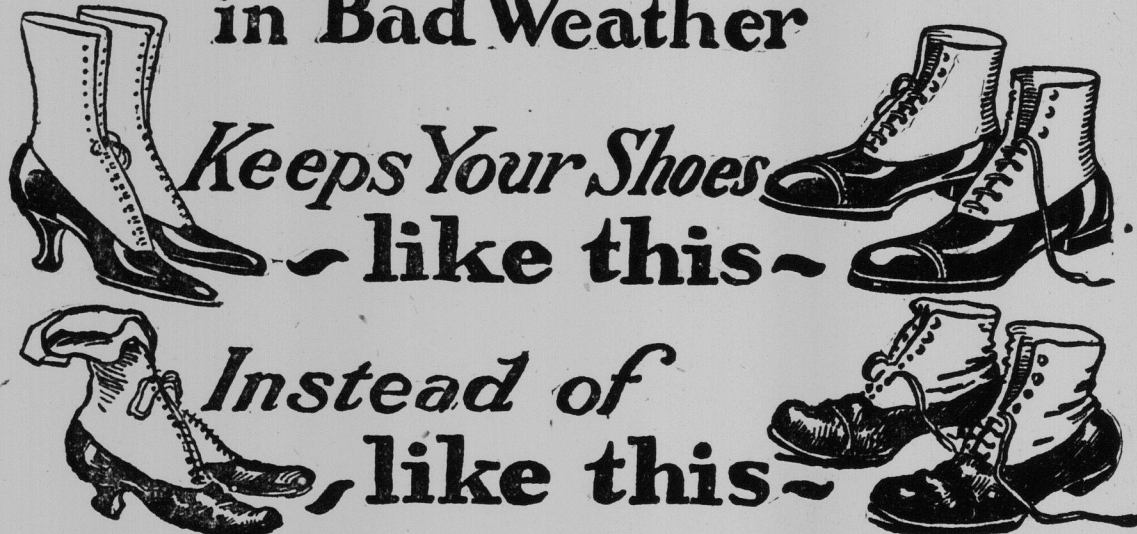 in Bad Weather
Keeps Your Shoes
~like this~
Instead of
~like this~